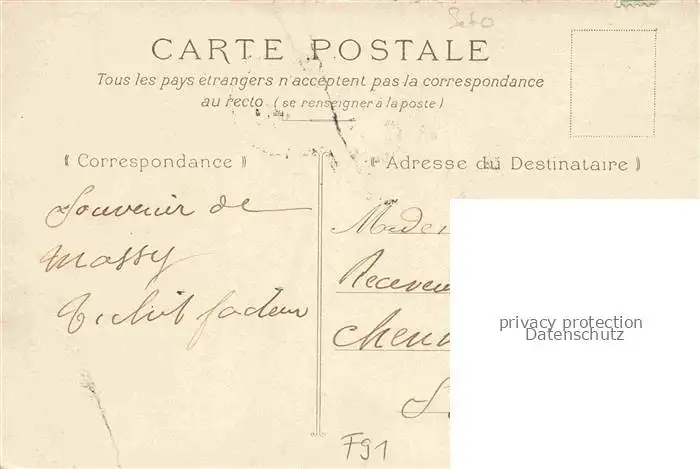 CARTE POSTALE
Tous les pays étrangers n'acceptent pas la correspondance
au recto. (se renseigner à la poste)
Correspondance
Adresse du Destinataire
Souvenir de
Massy
facteur
Receveu
Chen
privacy protection
Datenschutz
F91